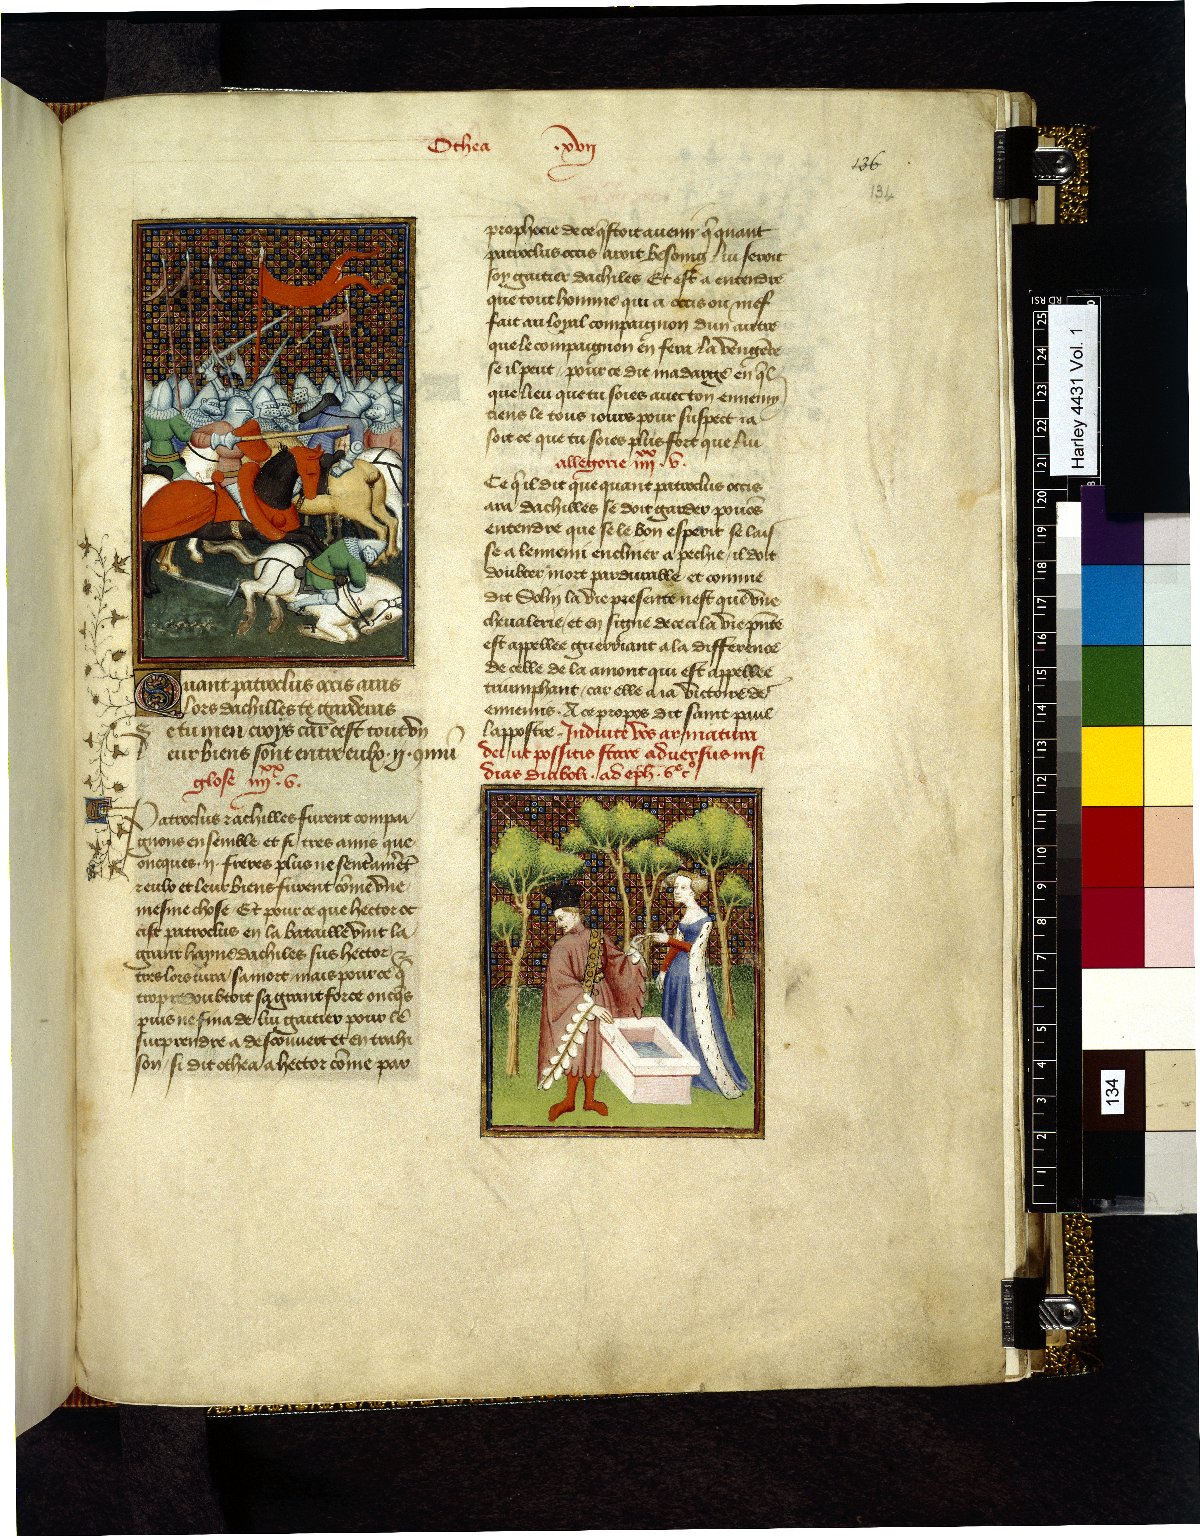 Othea .xvii
136
134
Quant patroclus occis auras
Lors dachilles te garderas
se tu men croys car cest tout vn
Leur biens sont entre eulx .ii. cōmū
glose iiii xx .v.
Patroclus & achilles furent compai
gnons ensemble et si tres amis que
oncques .ii. freres plus ne sentramerēt
& eulx et leur biens furent cōme vne
mesme chose Et pour ce que hector oc
cist patroclus en la bataille vint la
grant hayne dachilles sus hector &
tres lors iura sa mort mais pour ce q̄
trop redoubtoit sa grant force oncq̄s
puis ne fina de lui gaitier pour le
surprendre a descouuert et en trahi
son si dit othea a hector cōme par
prophecie de ce q̄ estoit a uenir q̄ quant
patroclus occis aroit besoing lui seroit
soy gaitier dachiles Et est a entendre
que tout homme qui a occis ou mef
fait au loyal compaignon dun autre
que le compaignon en fera la vengēce
se il peut pour ce dit madarge en q̄l
que lieu que tu soies auec ton ennemy
tiens le tous iours pour suspect ia
soit ce que tu soies plus fort que lui
allegorie iiii xx .v.
Ce q̄ il dit que quant patroclus occis
ara dachilles se doit garder pouōs
entendre que se le bon esperit se lais
se a lennemi encliner a pechie il doit
doubter mort pardurable et comme
dit Solin la vie presente nest que vne
cheualerie et en signe de ce ci la vie pn̄te
est appellee guerriant a la difference
de celle de la amont qui est appellee
triumphant car elle a ia victoire de
ennemis . A ce propos dit saint paul
lappostre . Induite vos armatura
dei ut possitis stare aduersus insi
dias diaboli . ad eph̄ . 6º cº
Harley 4431 Vol. 1
RD RSI
25
24
23
22
21
20
19
18
17
16
15
14
13
12
11
10
9
8
7
5
4
3
2
1
134